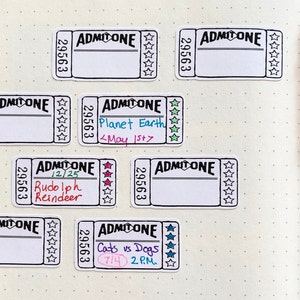 ADMIT ONE
29563
ADMIT ONE
29563
ADMIT ONE
ADMIT ONE
29563
Planet Earth
<May 1st>
ADMIT ONE
29563
12/25
Rudolph
Reindeer
ADMIT ONE
29563
ADMIT ONE
ADMIT ONE
29563
Cats vs Dogs
7/4 2 P.M.